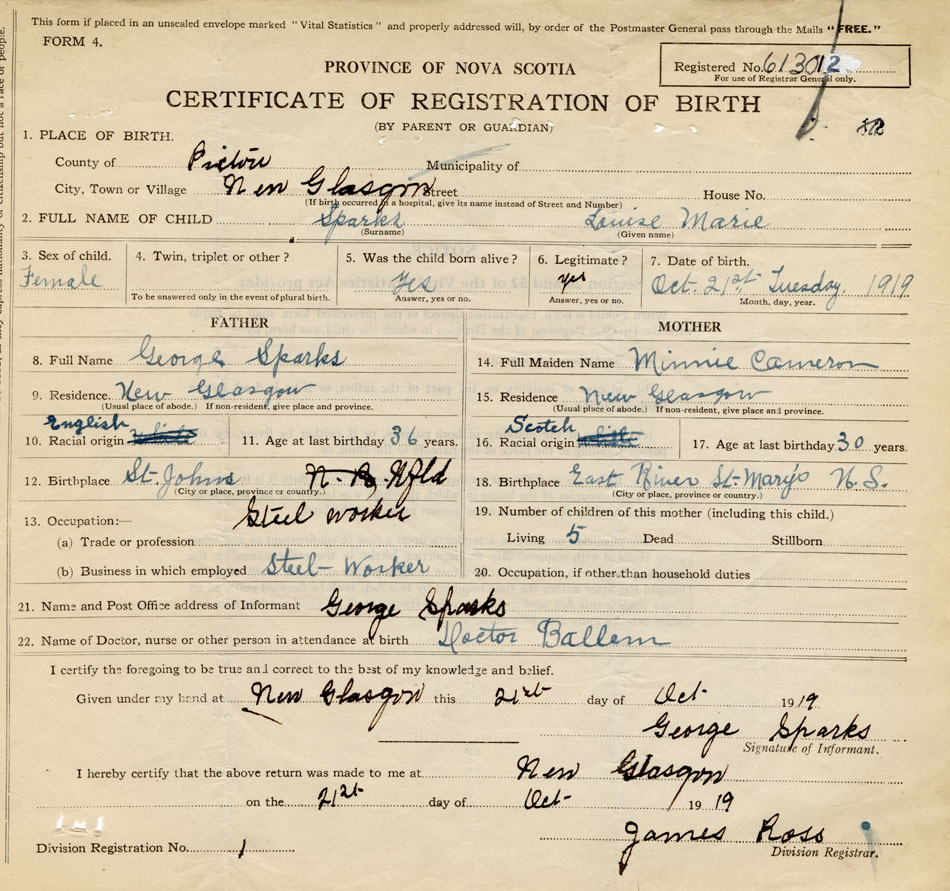 This form if placed in an unsealed envelope marked "Vital Statistics" and properly addressed will, by order of the Postmaster General pass through the Mails "FREE."
FORM 4.
Registered No. 613012
For use of Registrar General only.
PROVINCE OF NOVA SCOTIA
CERTIFICATE OF REGISTRATION OF BIRTH
(BY PARENT OR GUARDIAN)
1. PLACE OF BIRTH.
County of Pictou Municipality of
City, Town or Village New Glasgow Street House No.
(If birth occurred in a hospital, give its name instead of Street and Number)
2. FULL NAME OF CHILD Sparks Louise Marie
(Surname) (Given name)
3. Sex of child. 4. Twin, triplet or other? 5. Was the child born alive? 6. Legitimate? 7. Date of birth.
Female Yes yes Oct. 21st Tuesday. 1919
To be answered only in the event of plural birth. Answer, yes or no. Answer, yes or no. Month, day, year.
FATHER
8. Full Name George Sparks
9. Residence. New Glasgow
(Usual place of abode.) If non-resident, give place and province.
English
10. Racial origin White 11. Age at last birthday 36 years.
12. Birthplace St. Johns N. B. Nfld
(City or place, province or country.)
13. Occupation:— Steel worker
(a) Trade or profession
(b) Business in which employed Steel-Worker
MOTHER
14. Full Maiden Name Minnie Cameron
15. Residence New Glasgow
(Usual place of abode.) If non-resident, give place and province.
Scotch
16. Racial origin White 17. Age at last birthday 30 years.
18. Birthplace East River St-Mary's N.S.
(City or place, province or country.)
19. Number of children of this mother (including this child.)
Living 5 Dead Stillborn
20. Occupation, if other than household duties
21. Name and Post Office address of Informant George Sparks
22. Name of Doctor, nurse or other person in attendance at birth Doctor Ballem
I certify the foregoing to be true and correct to the best of my knowledge and belief.
Given under my hand at New Glasgow this 21st day of Oct 1919.
George Sparks
Signature of Informant.
I hereby certify that the above return was made to me at New Glasgow
on the 21st day of Oct 1919
James Ross
Division Registrar.
Division Registration No. 1